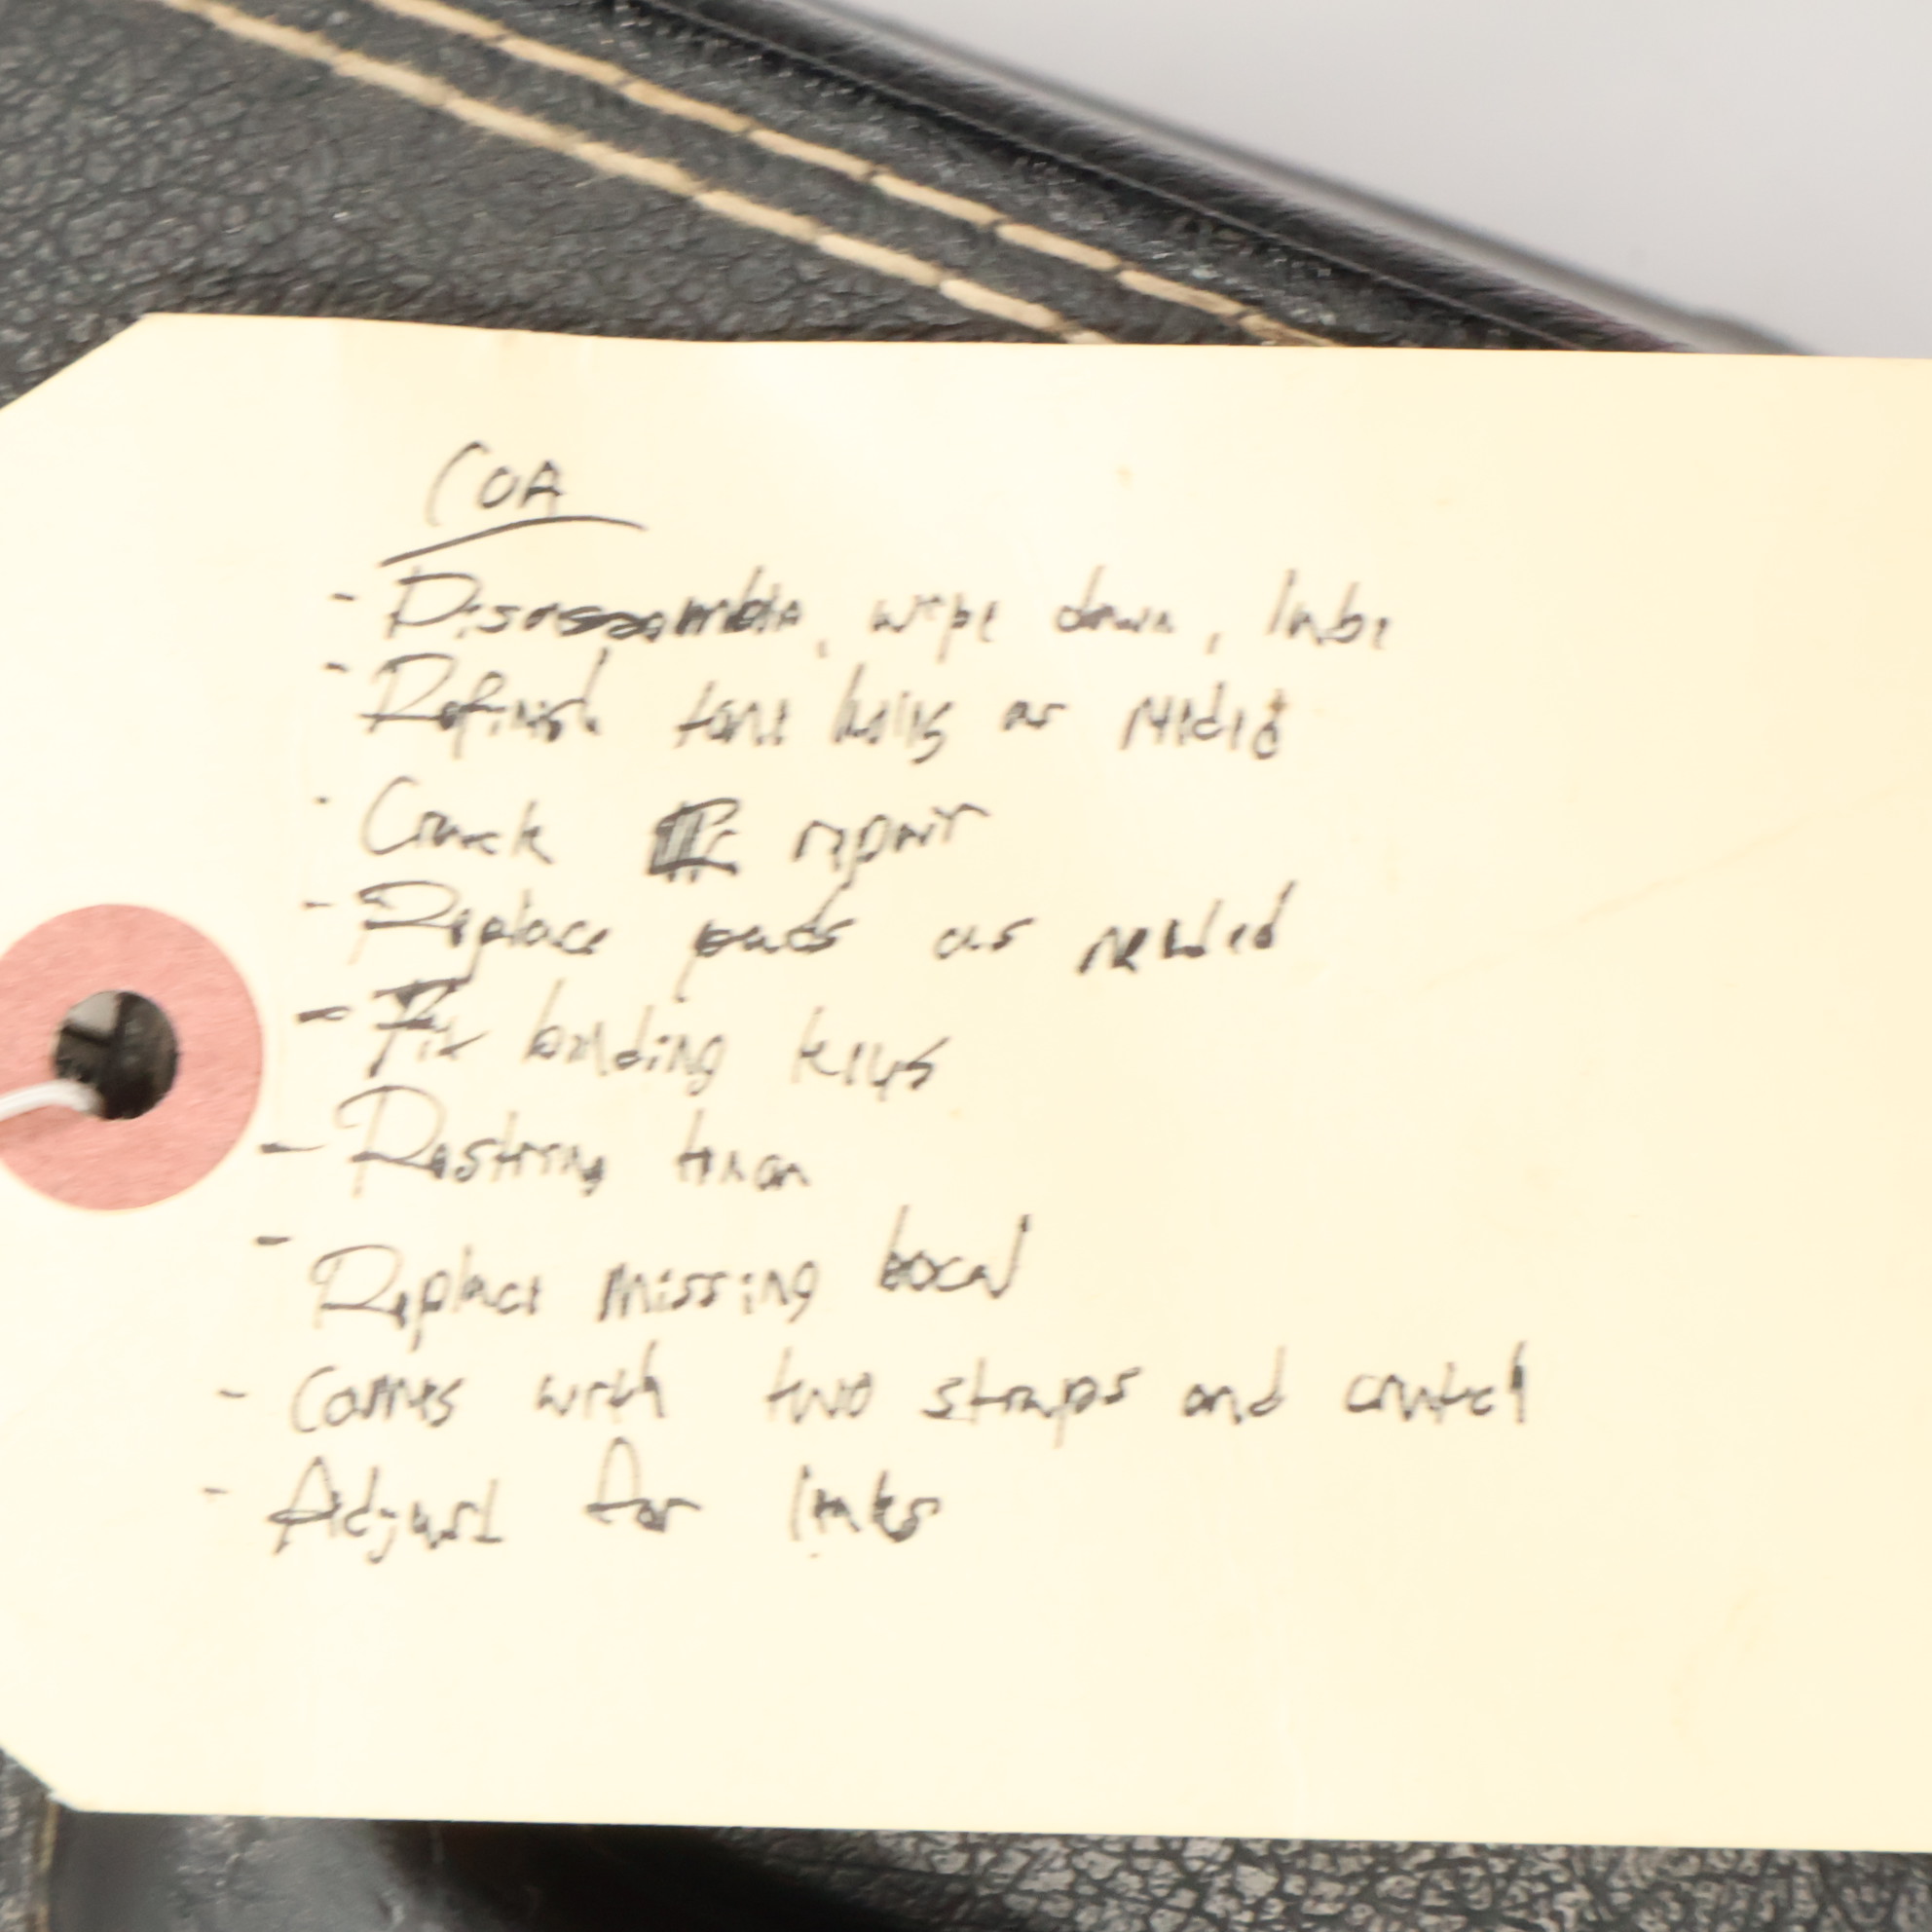 COA
- Disassemble, wipe down, lube
- Refinish tone holes as needed
- Crack repair
- Replace pads as needed
- Fix binding keys
- Restring tenon
- Replace missing bocal
- Comes with two straps and crutch
- Adjust for leaks